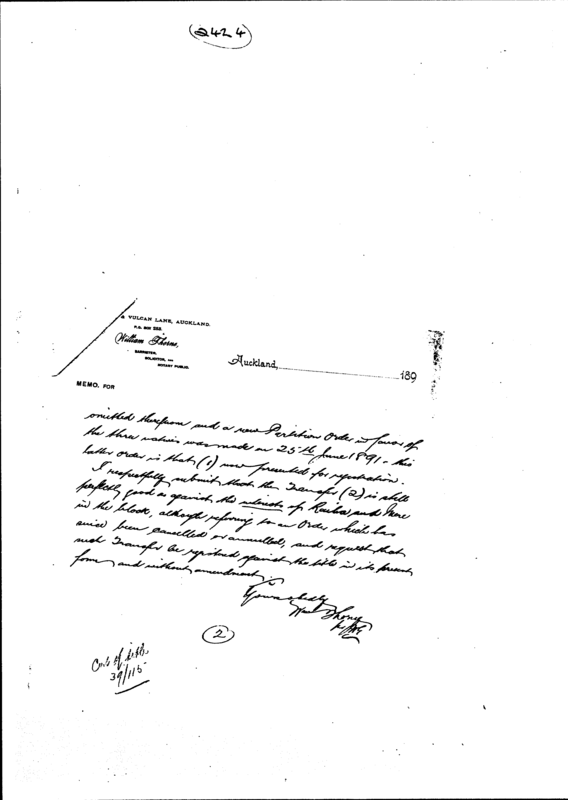 (2424)
& VULCAN LANE, AUCKLAND.
P.O. BOX 252.
William Thorne,
BARRISTER,
SOLICITOR, AND
NOTARY PUBLIC.
Auckland, 189
MEMO. FOR
omitted therefrom and a new Partition Order in favor of
the three natives was made on 25th June 1891 - this
latter order is that (1) now presented for registration.
I respectfully submit that the Transfer (2) is still
perfectly good as against the interests of and Mere
in the block, although referring to an Order which has
since been cancelled or annulled, and request that
such Transfer be registered against the title in its present
form and without amendment
Yours obdly
Thorne
(2)
39/115